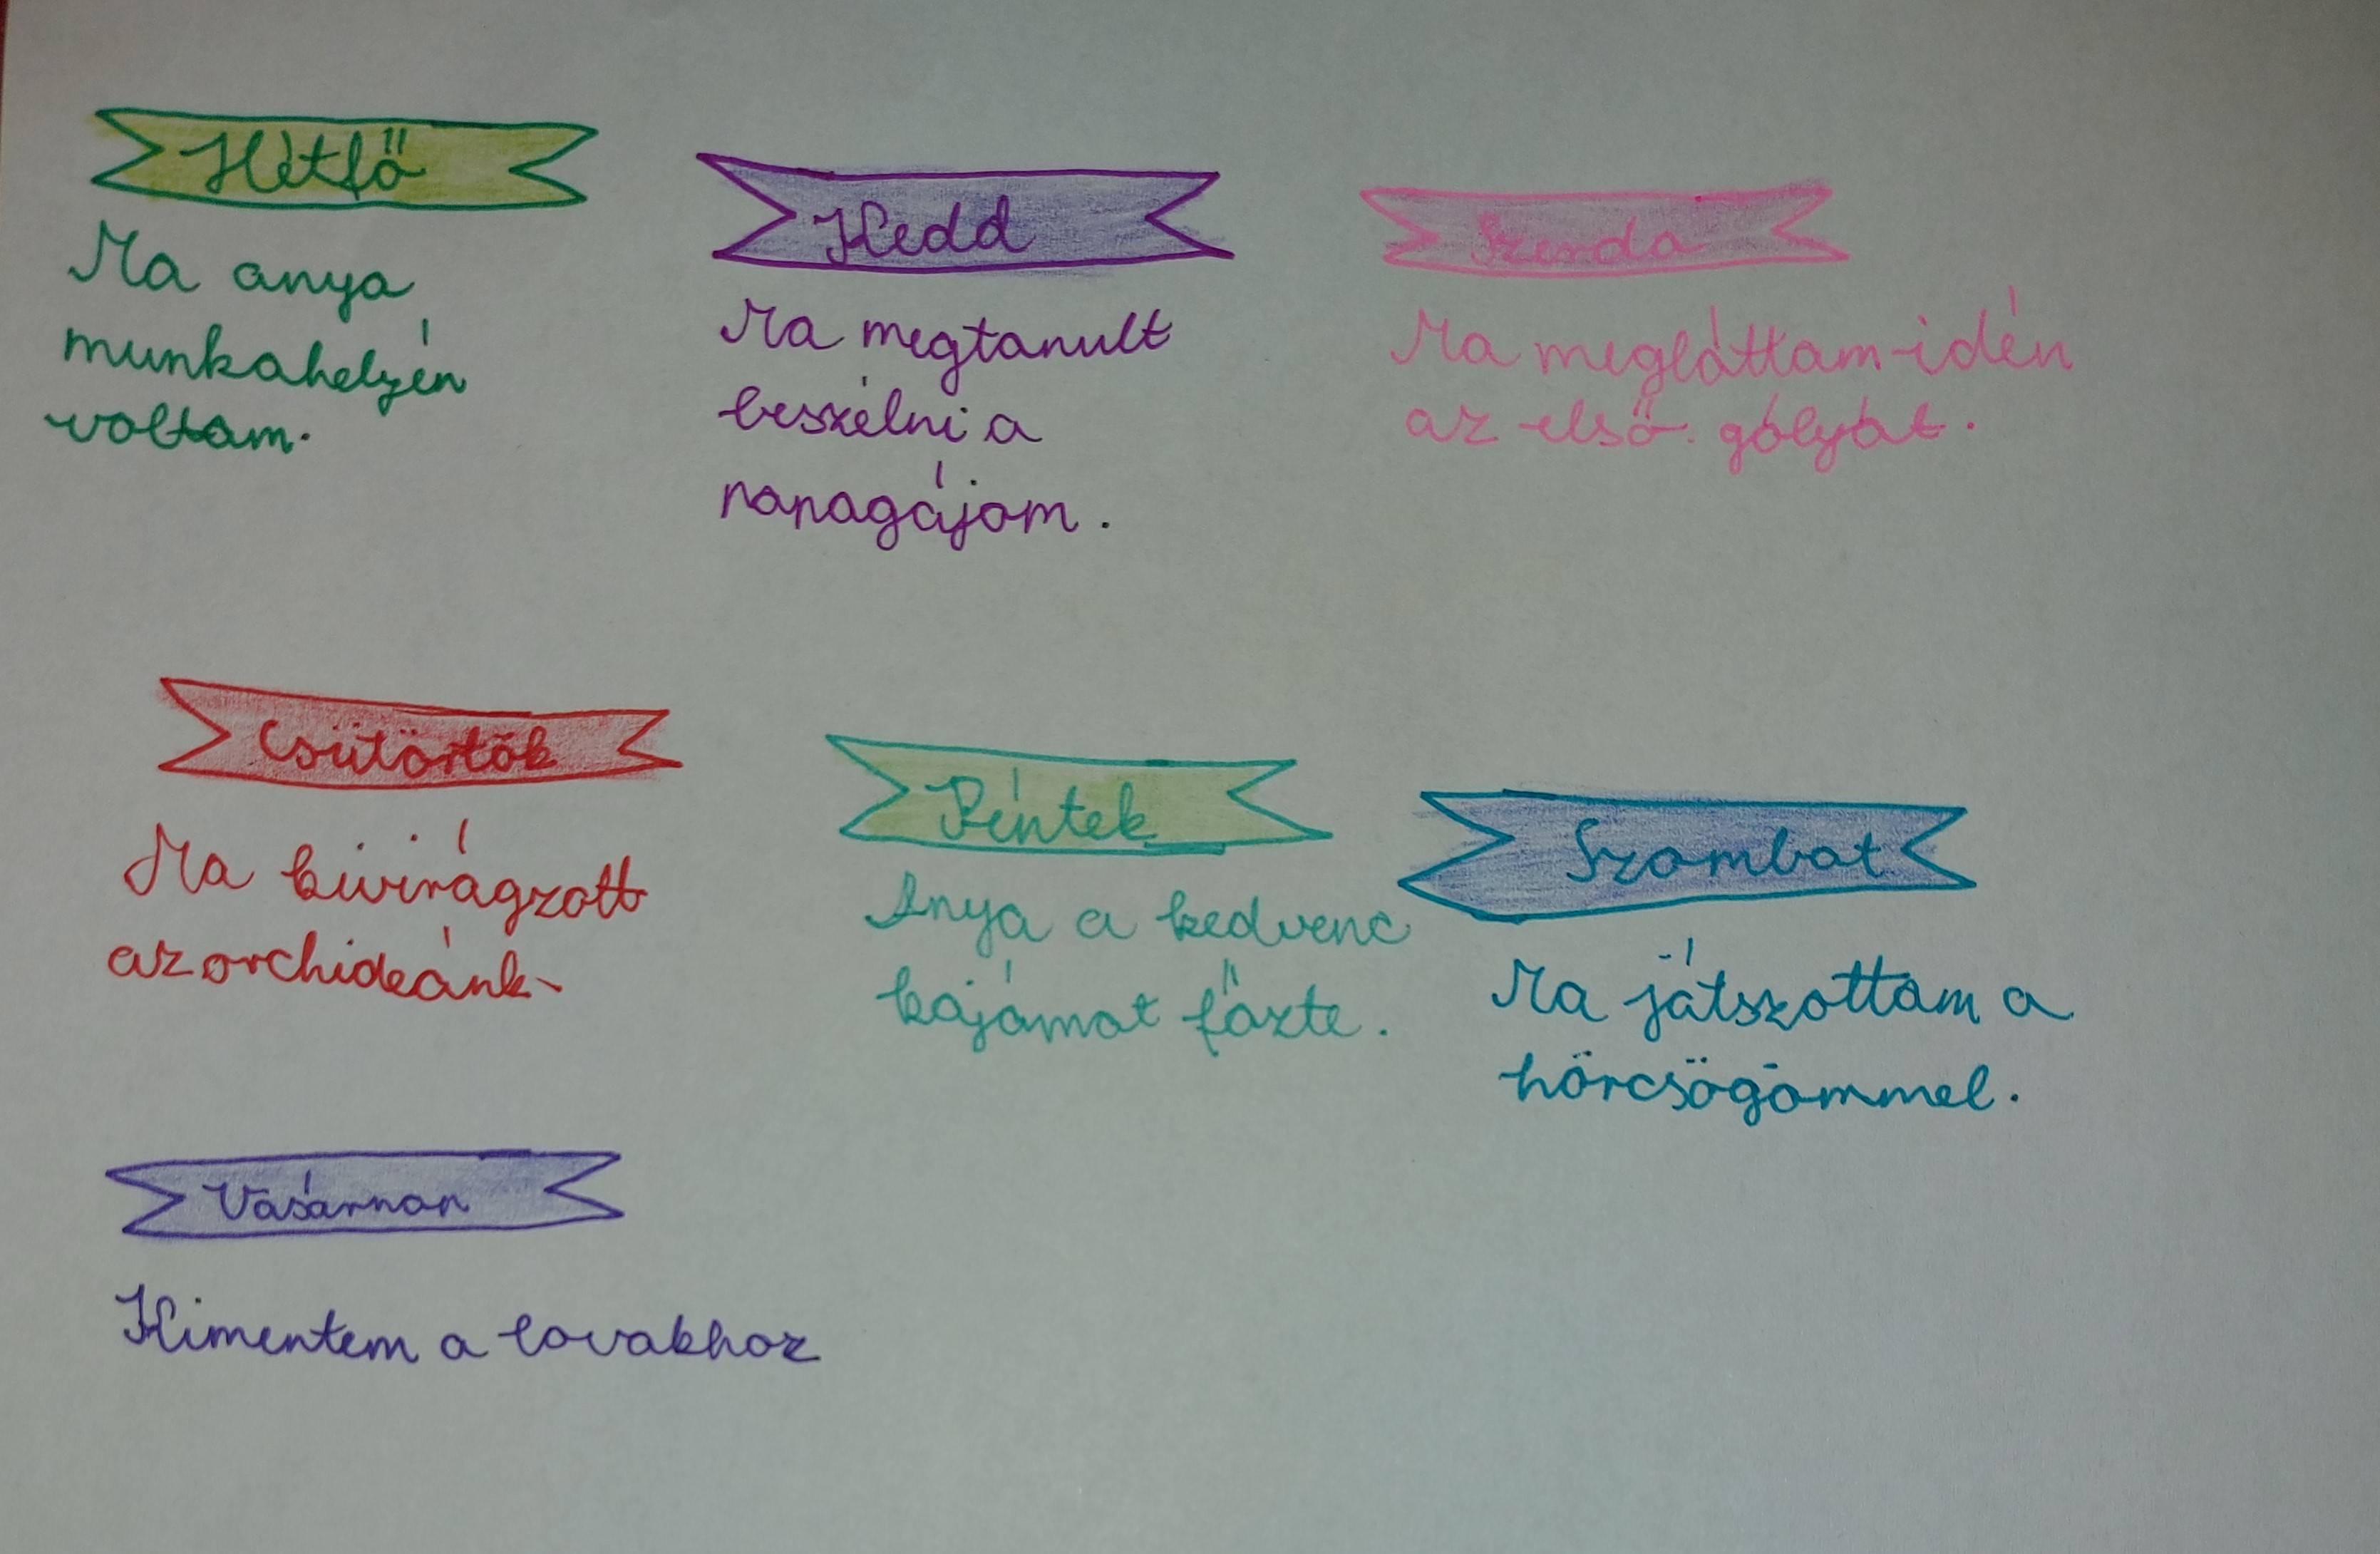 Hétfő
Ma anya
munkahelyén
voltam.
Hedd
Ma megtanult
beszélni a
papagájom.
Szerda
Ma megláttam idén
az első gólyát.
Csütörtök
Ma kivirágzott
az orchideánk.
Péntek
Anya a kedvenc
kajámat főzte.
Szombat
Ma játszottam a
hörcsögömmel.
Vasárnap
Kimentem a lovakhoz